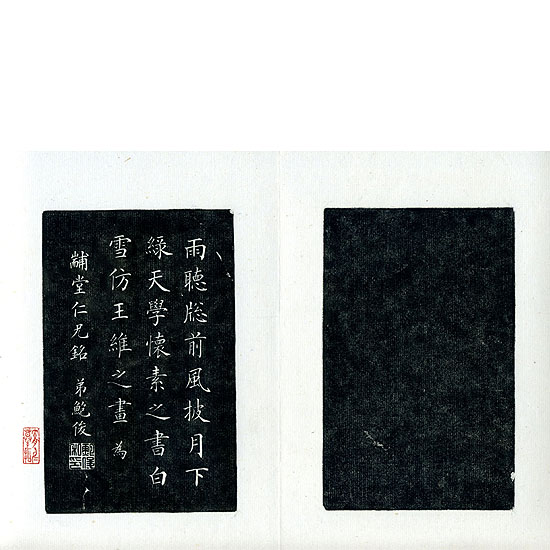 雨聽牕前風披月下
綠天學懷素之書白
雪仿王維之畫為
黼堂仁兄銘 弟鮑俊